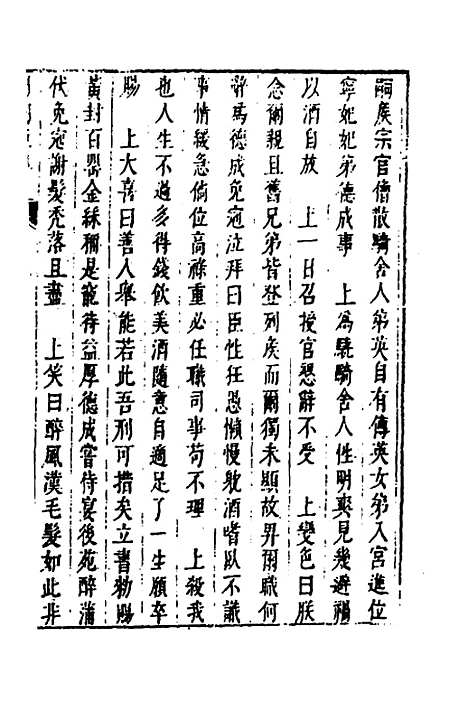 嗣廣宗官僧散騎舍人第英自有傳英女第入宮進位
寧妃妃第德成事　上為驍騎舍人性明爽見幾避禍
以酒自放　上一日召授官懇辭不受　上變色曰朕
念爾親且舊兄第皆登列侯而爾獨未顯故畀爾職何
辭為德成免冠泣拜曰臣性狂愚懶慢躭酒嗜臥不識
事情緩急倘位高祿重必任職司事苟不理　上殺我
也人生不過多得錢飲美酒隨意自適足了一生願卒
賜　上大喜曰善人舉能若此吾刑可措矣立書勑賜
黃封百甖金綵稱是寵待益厚德成嘗侍宴後苑醉蒲
代免冠謝髮禿落且盡　上笑曰醉風漢毛髮如此非